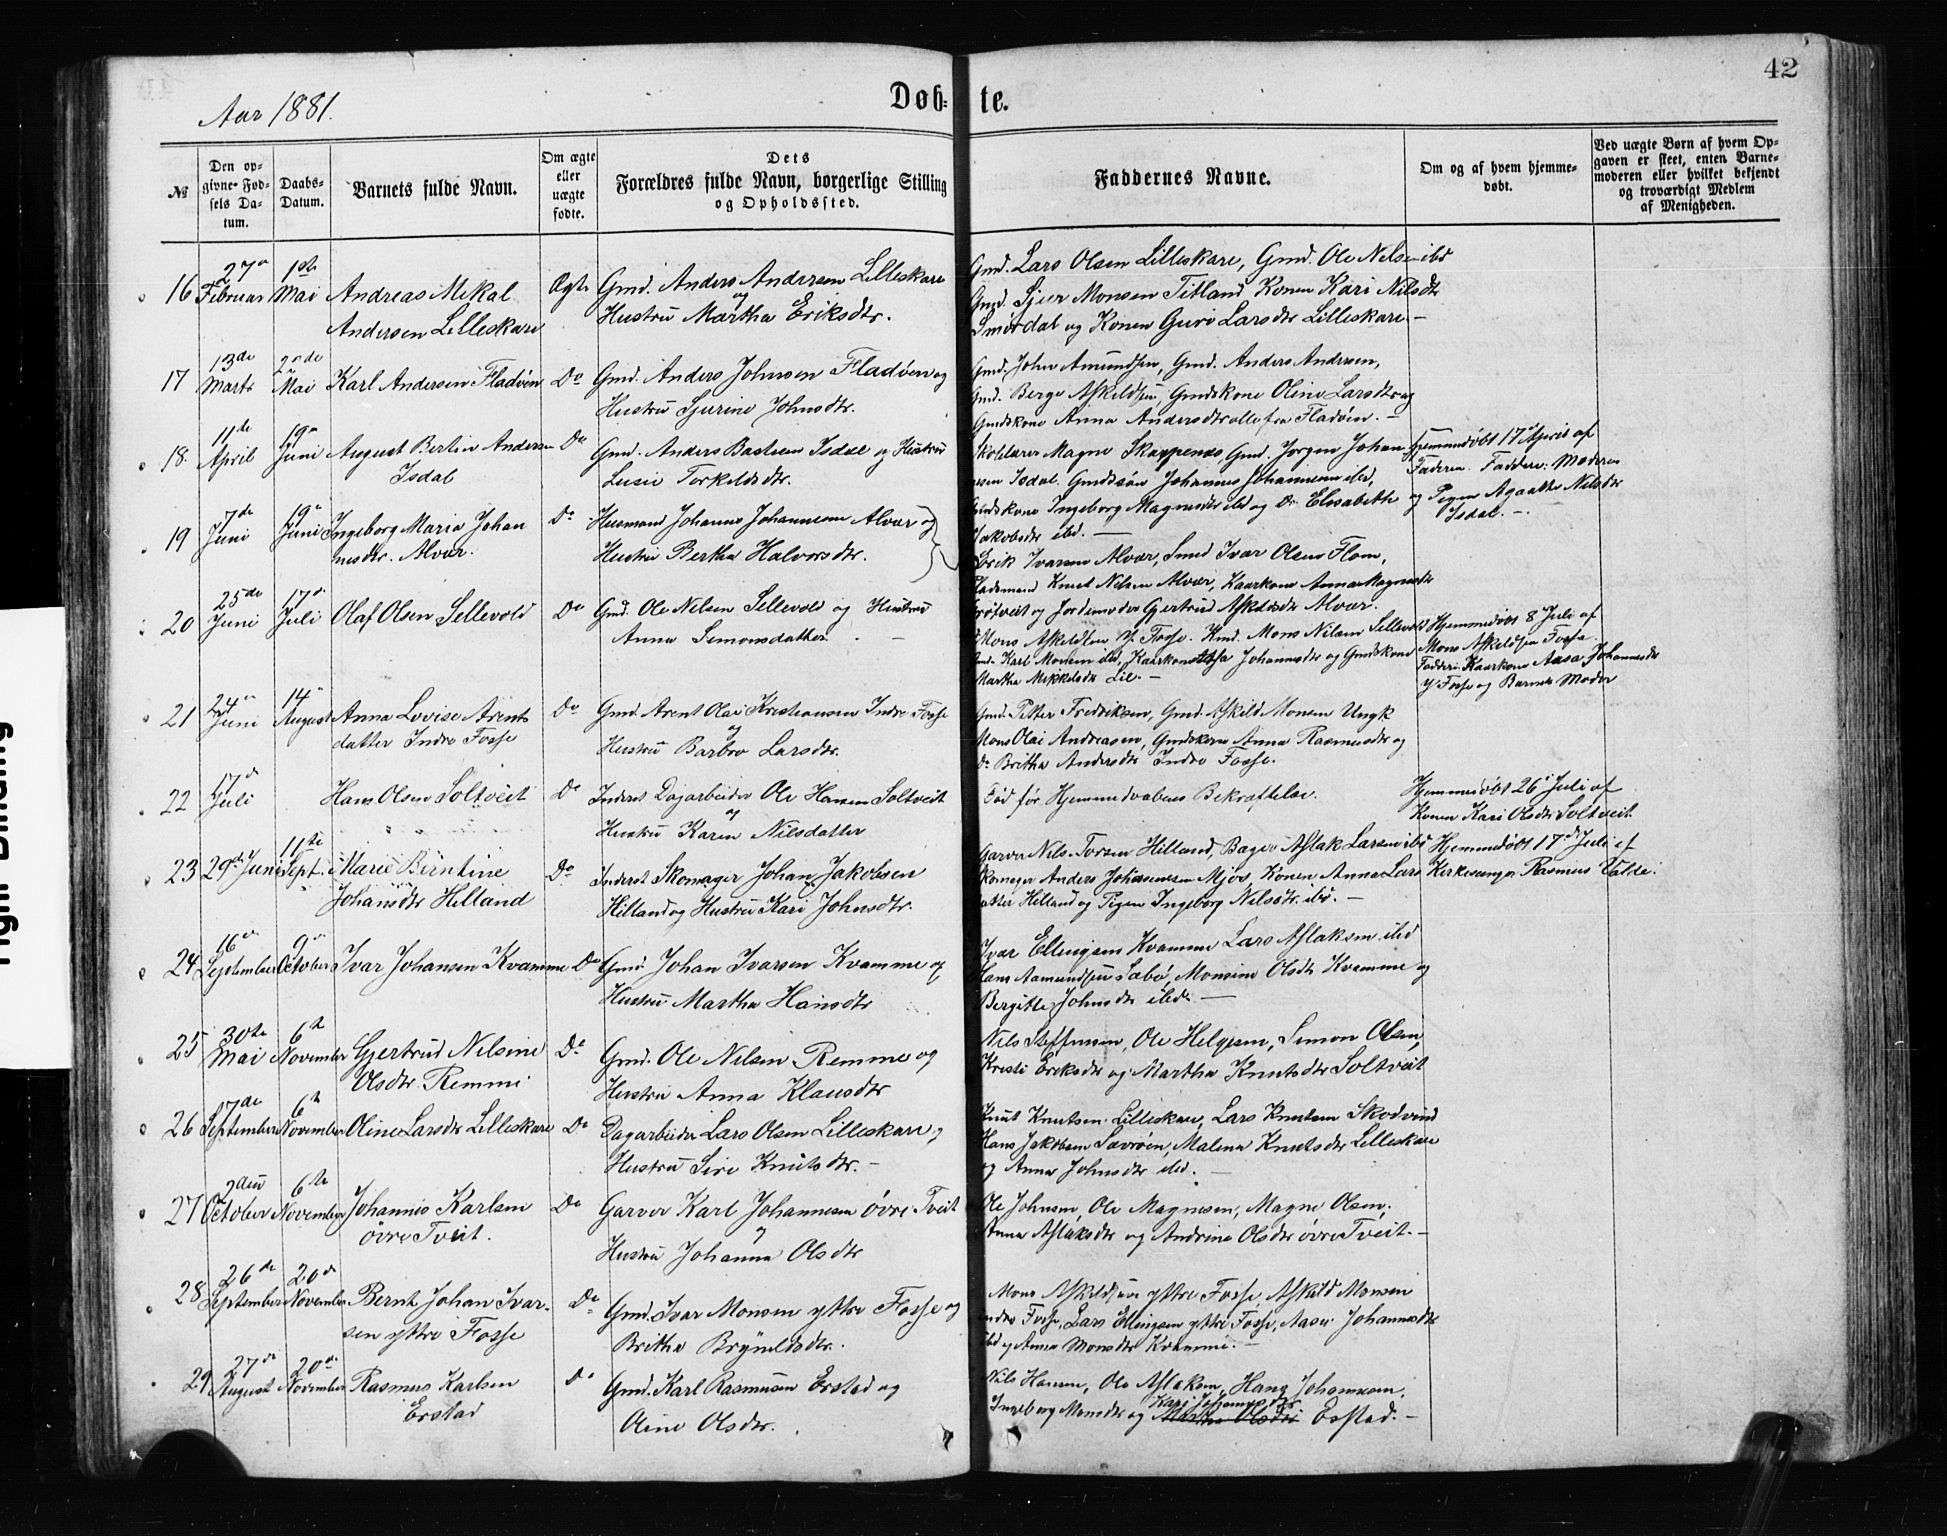 42
Aar 1881.
Døb- te.
№
Den op-
givne Fød-
sels Da-
tum.
Daabs-
Datum.
Barnets fulde Navn.
Om ægte
eller
uægte
fødte.
Dets
Forældres fulde Navn, borgerlige Stilling
og Opholdssted.
Faddernes Navne.
Om og af hvem hjemme-
døbt.
Ved uægte Børn af hvem Op-
gaven er skeet, enten Barne-
moderen eller hvilket bekjendt
og troværdigt Medlem
af Menigheden.
16 27 Februar 1ste Mai Andreas Mikal
Andersen Lilleskare
Ægte Gmd. Anders Andersen Lilleskare
og
Hustru Martha Eriksdtr.
Gmd. Lars Olsen Lilleskare, Gmd. Ole Nilsen ibd
Gmd. Sjur Monsen Titland Konen Kari Nilsdtr
Smørdal og Konen Guri Larsdtr Lilleskare. –
17 13de Marts Mai Karl Andersen Fladøen
Do Gmd. Anders Johnsen Fladøen og
Hustru Sjurine Johnsdtr.
Gmd. John Amundsen, Gmd. Anders Andersen,
Gmd. Berge Askeldsen, Gmdskone Oline Larsdtr og
Gmdskone Anna Andersdtr alle fra Fladøen. –
18. 11te April 19 Juni August Bertin Andersen
Isdal
Do Gmd. Anders Bastian Isdal og Hustru
Lusie Torkeldsdtr.
Skolelærer Magne Skappenes, Gmd. Jørgen Johan-
nesen Isdal. Gmdssøn Johannes Johannesen ibd,
Gmdskone Ingeborg Magnesdtr ibd og Do Elisabeth
Jakobsdtr ibd. –
Hjemmedøbt 17 April af
Faderen. Faddere: Moderen
og Pigen Agaathe Nilsdtr
Isdal. –
19 7de Juni 19 Juni Ingeborg Maria Johan
nesdtr. Alvær.
Do Husmand Johannes Johannesen Alvær og
Hustru Bertha Halvorsdtr.
Erik Ivarsen Alvær, Smed Ivar Olsen Flom,
Pladsmand Knut Nilsen Alvær, Kaarkone Anna Magnesdtr
Grøtveit og Jordemoder Gjertrud Askeldsdtr Alvær.
20 25de Juni 17 Juli Olaf Olsen Sellevold
Do Gmd. Ole Nilsen Sellevold og Hustru
Anna Simonsdatter –
Mons Askeldsen Y. Fosse. Gmd. Mons Nilsen Sellevold
Gmd. Karl Monsen ibd, Kaarkone Johannesdtr og Gmdskone
Martha Mikkelsdtr Lie. –
Hjemmedøbt 8 Juli af
Mons Askeldsen Fosse.
Faddere: Kaarkone Aasa Johannesdtr
Y Fosse og Barnets Moder
21 24 Juni 14 August Anna Lovise Arents
datter Indre Fosse
Do Gmd. Arent Olai Kristiansen Indre Fosse
og
Hustru Barbro Larsdtr.
Gmd. Petter Fredriksen, Gmd. Askild Monsen Ungk
Mons Olai Andreasen, Gmdskone Anna Rasmusdtr og
Do Britha Andersdtr Indre Fosse.
22 17 Juli Hans Olsen Soltveit
Do Inderst Dagarbeider Ole Hansen Soltveit
og
Hustru Karen Nilsdatter
Død før Hjemmedaabens Bekræftelse.
Hjemmedøbt 26 Juli af
Konen Kari Olsdtr Soltveit.
23 29de Juni 11te Sept. Marie Berntine
Johansdtr Helland
Do Inderst Skomager Johan Jakobsen
Helland og Hustru Kari Johnsdtr.
Garver Nils Torsen Helland, Bager Aslak Larsen ibd
Skomager Anders Johannesen Mjøs, Konen Anna Lars
datter Helland og Pigen Ingeborg Nilsdtr. ibd. –
Hjemmedøbt 17de Juli af
Kirkesanger Rasmus Valde.
24 16 September 9 October Ivar Johansen Kvamme
Do Gmd Johan Ivarsen Kvamme og
Hustru Martha Hansdtr
Ivar Ellingsen Kvamme Lars Aslaksen ibd
Hans Aamundsen Sæbø, Monsine Olsdtr Kvamme og
Bergitte Johnsdtr ibd. –
25 30te Mai 6te November Gjertrud Nilsine
Olsdtr Remme
Do Gmd. Ole Nilsen Remme og
Hustru Anna Klausdtr
Nils Steffensen, Ole Helgesen, Simon Olsen,
Kristi Eriksdtr og Martha Knutsdtr Soltveit
26 7de September 6te November Oline Larsdtr Lilleskare
Do Dagarbeider Lars Olsen Lilleskare og
Hustru Siri Knutsdtr. –
Knut Knutsen Lilleskare, Lars Knutsen Skodvind
Hans Jakobsen Sævrøen, Malena Knutsdtr Lilleskare
og Anna Johnsdtr ibd. –
27 2den October 6te November Johannes Karlsen
øvre Tveit.
Do Garver Karl Johannesen øvre Tveit
og
Hustru Johanna Olsdtr
Ole Johnsen, Ole Magnesen, Magne Olsen,
Anna Aslaksdtr og Andrine Olsdtr øvre Tveit. –
28 26de September 20de November Bernt Johan Ivar-
sen yttre Fosse
Do Gmd. Ivar Monsen yttre Fosse og
Britha Brynildsdtr.
Mons Askeldsen yttre Fosse, Askild Monsen
indre Fosse, Lars Ellingsen yttre Fosse, Aase Johannesdtr
ibd og Anna Monsdtr Kvamme. –
29 27de August 20de November Rasmus Karlsen
Erstad
Do Gmd. Karl Rasmusen Erstad og
Oline Olsdtr.
Nils Hansen, Ole Aslaksen, Hans Johannesen.
Kari Johannesdtr
Ingeborg Monsdtr og Martha Olsdtr Erstad. –